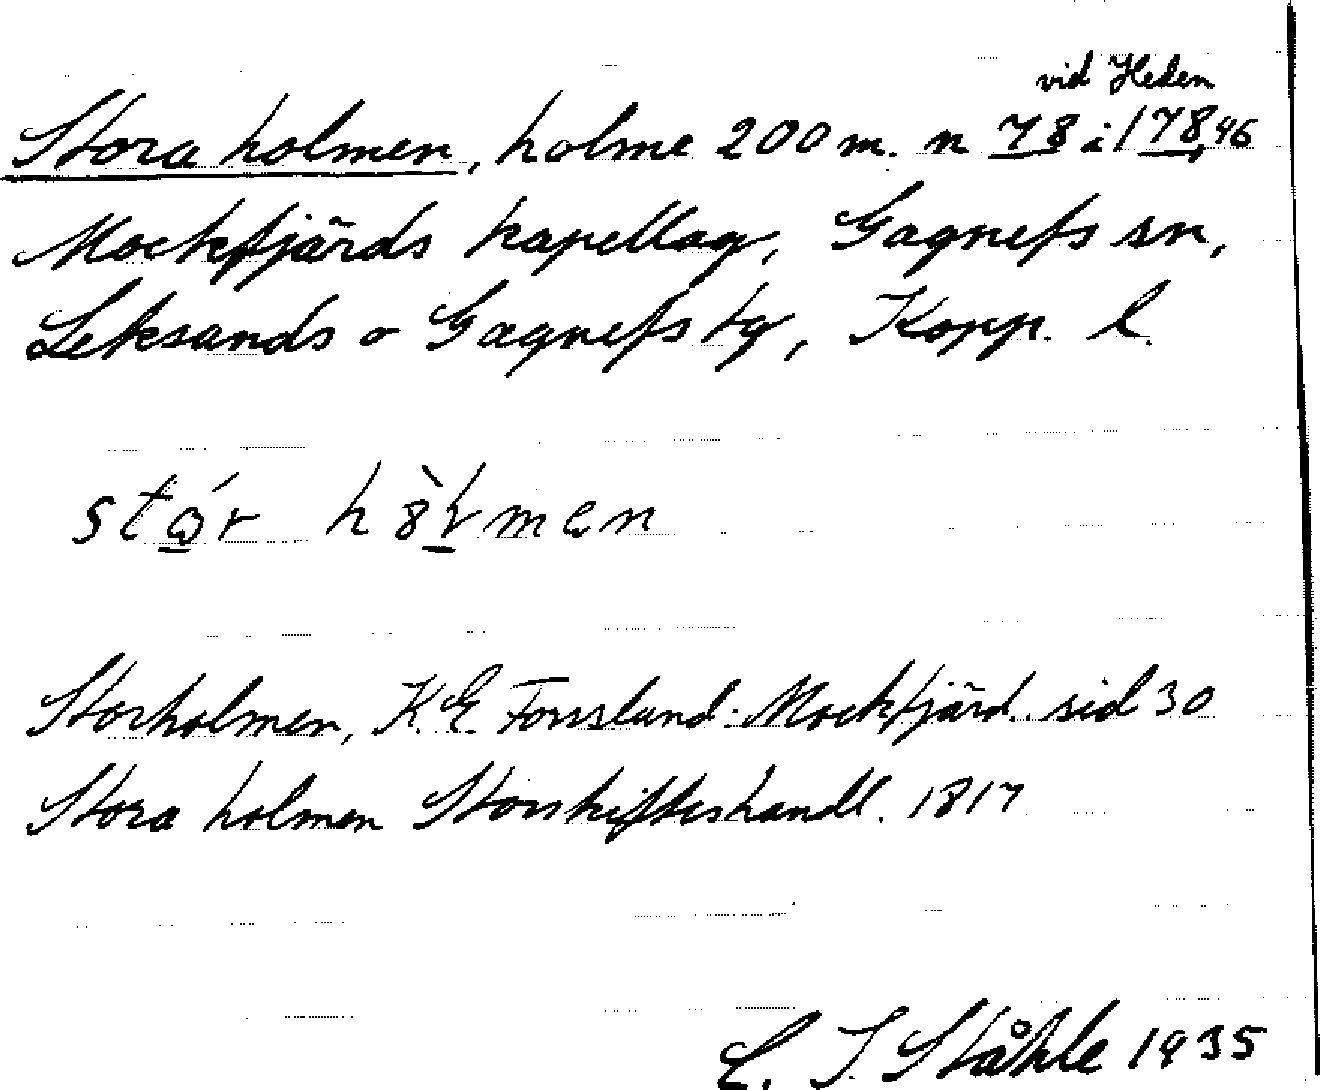 vid Heden
Stora holmen, holme 200 m. n 78 i 178,96
Mockfjärds kapellag, Gagnefs sn,
Leksands o Gagnefs tg, Kopp. l.
Storholmen, K.E. Forsslund. Mockfjärd. sid 30
Stora holmen Storskifteshandl. 1817
E. I. Ståhle 1935